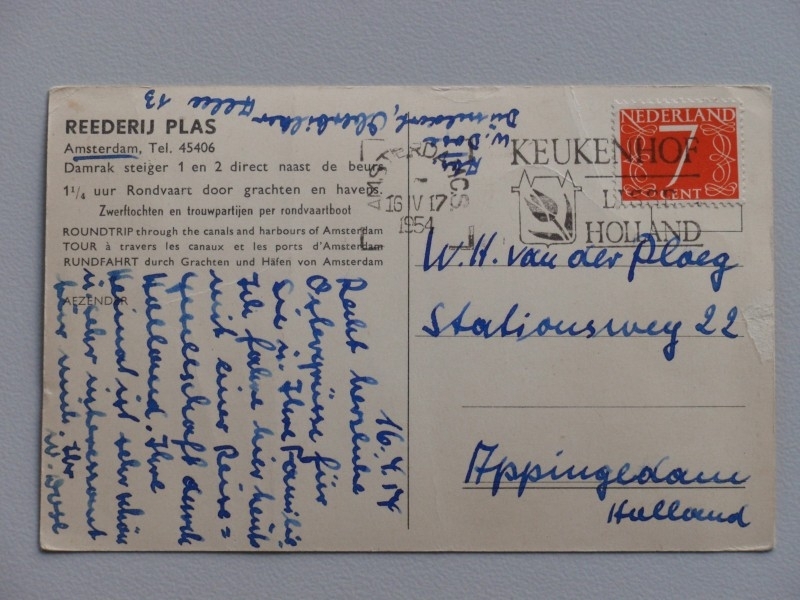 REEDERIJ PLAS
Amsterdam, Tel. 45406
Damrak steiger 1 en 2 direct naast de beurs
1¼ uur Rondvaart door grachten en havens.
Zwerftochten en trouwpartijen per rondvaartboot
ROUNDTRIP through the canals and harbours of Amsterdam
TOUR à travers les canaux et les ports d'Amsterdam
RUNDFAHRT durch Grachten und Häfen von Amsterdam
AFZENDER
16.4.54
Recht herzliche
Ostergrüsse für
Sie u. Ihre Familie
Ich fahre hier heute
mit einer Reise=
gesellschaft durch
Holland. Ihre
Heimat ist sehr schön
u. sehr interessant
für mich. Ihr
W. Dose
W. Dose
13
AMSTERDAM C.S.
16 IV 17
1954
KEUKENHOF
LISSE
HOLLAND
NEDERLAND
7
CENT
W. H. van der Ploeg
Stationsweg 22
Appingedam
Holland